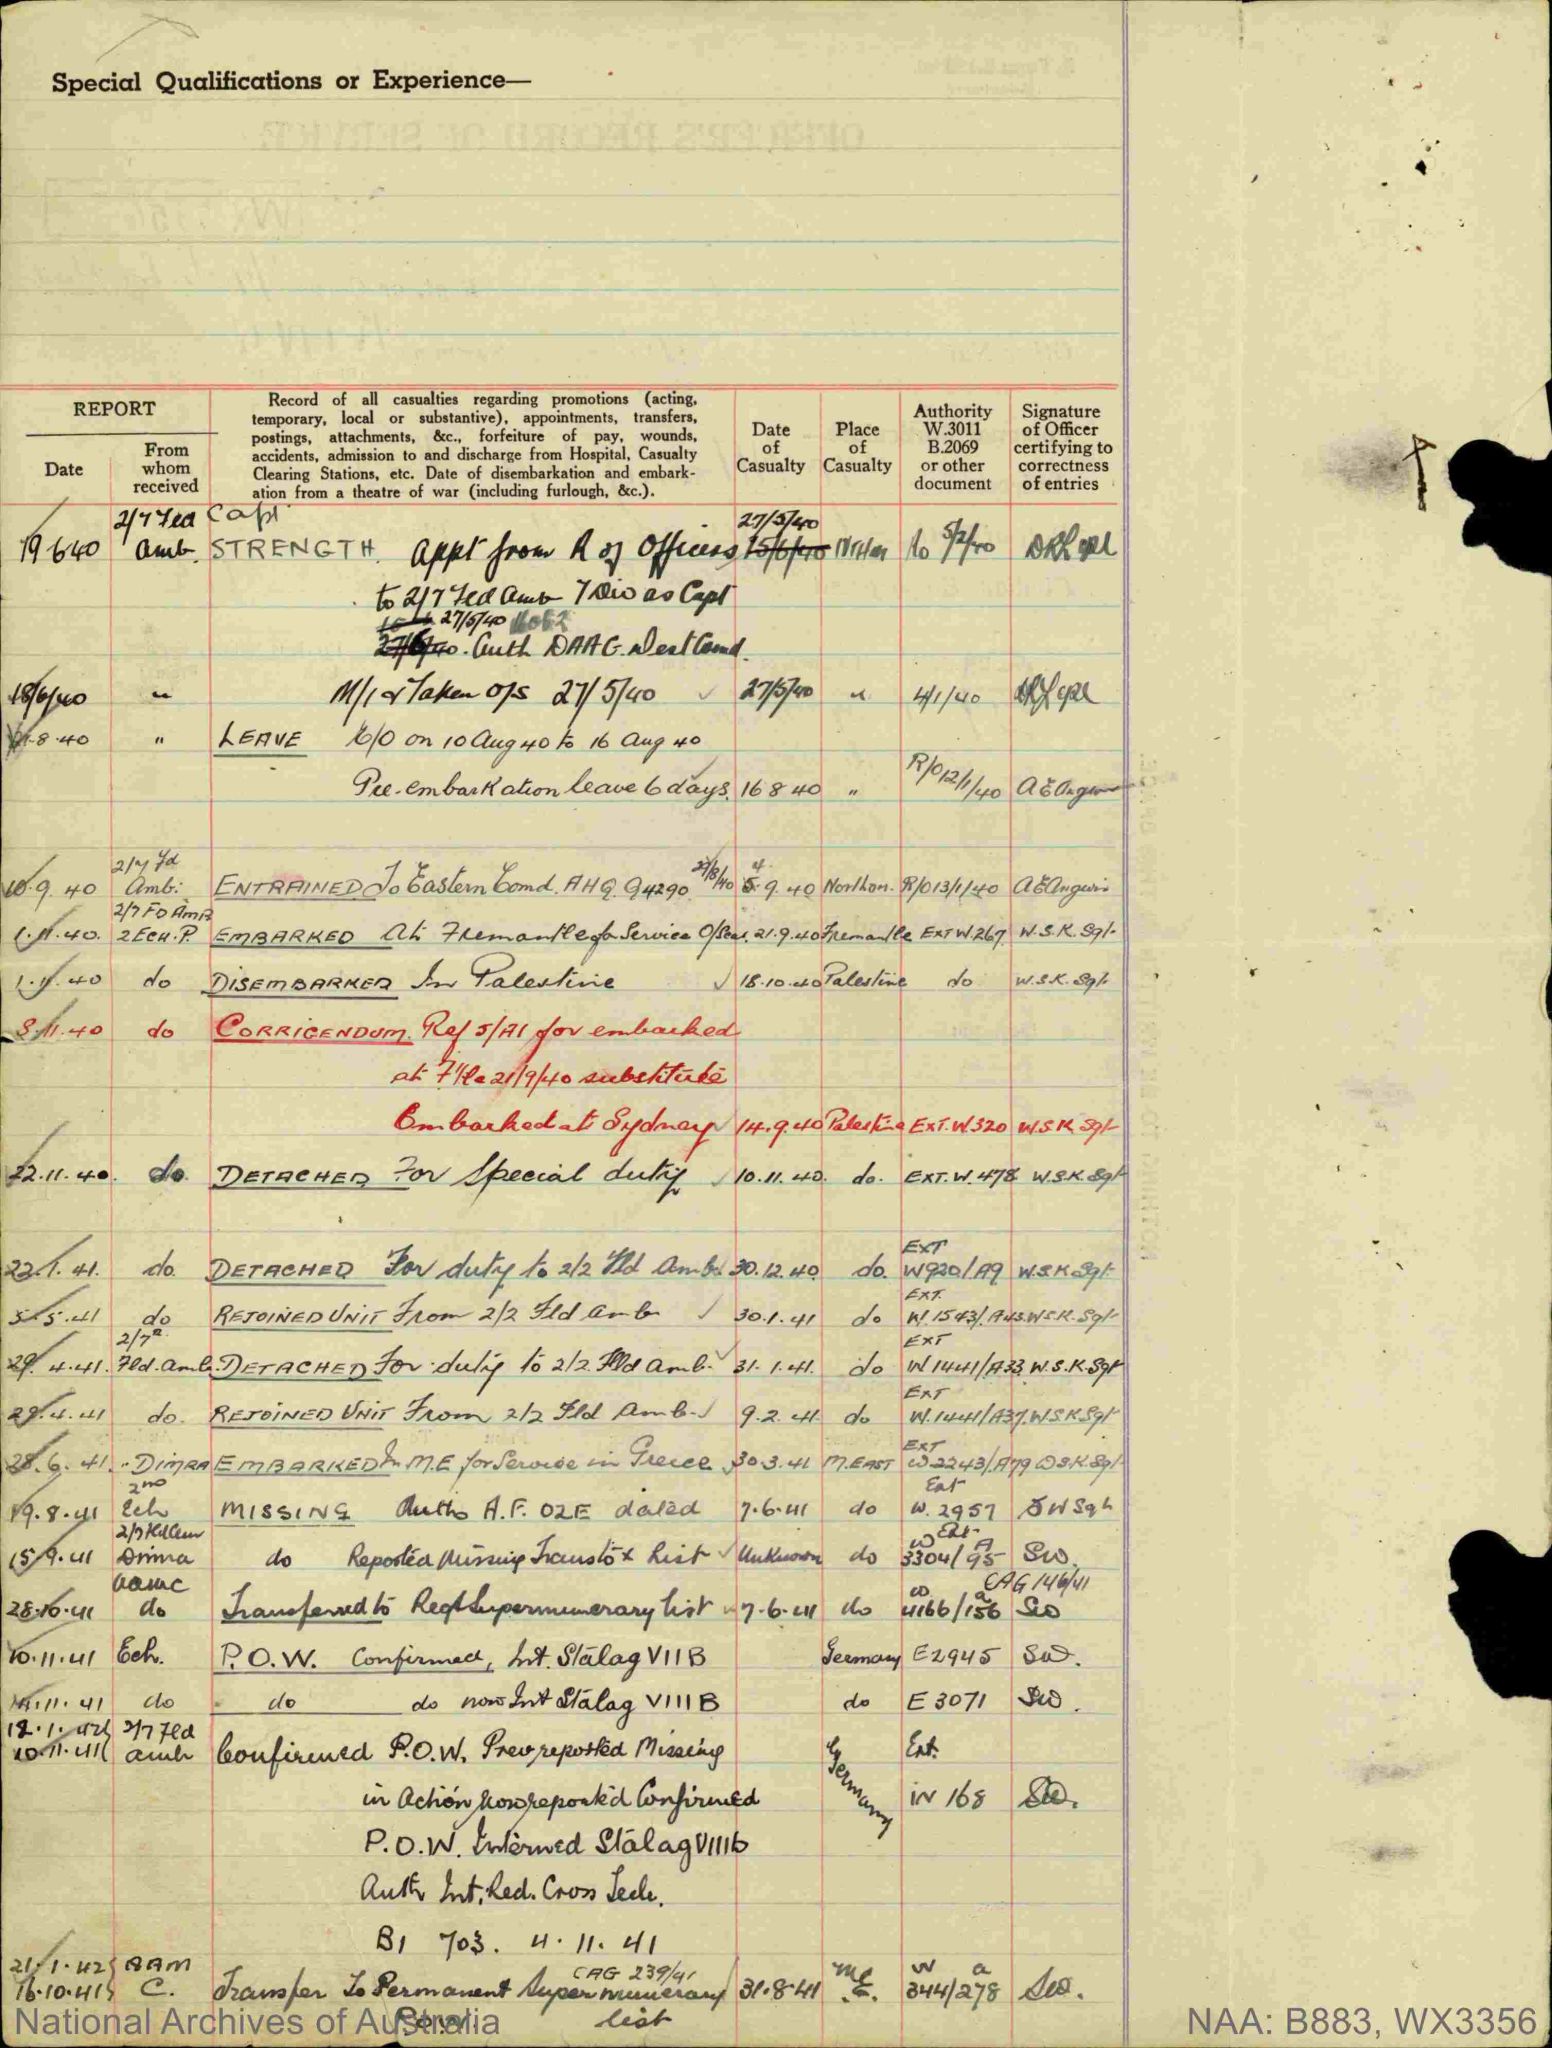 Special Qualifications or Experience—
REPORT
Date
From whom received
Record of all casualties regarding promotions (acting,
temporary, local or substantive), appointments, transfers,
postings, attachments, &c., forfeiture of pay, wounds,
accidents, admission to and discharge from Hospital, Casualty
Clearing Stations, etc. Date of disembarkation and embark-
ation from a theatre of war (including furlough, &c.).
Date of Casualty
Place of Casualty
Authority W.3011 B.2069 or other document
Signature of Officer certifying to correctness of entries
2/7 Fld Capt 27/5/40
19 6 40 Amb. STRENGTH Appt from R of Officers 15/6/40 5/2/40
to 2/7 Fld Amb 7 Div as Capt
27/5/40
Auth DAAG West Comd.
18/6/40 " Taken o/s 27/5/40 27/5/40 " 4/1/40
8.40 " LEAVE on 10 Aug 40 to 16 Aug 40
Pre-embarkation leave 6 days. 16 8 40 " R/O 12/1/40 A E Angwin
2/7 Fd 27/8/40 4
10.9.40 Amb. ENTRAINED To Eastern Comd. AHQ Q4290 5.9.40 Northam. R/O 13/1/40 A E Angwin
2/7 FD AMB
1.11.40. 2 ECH.P. EMBARKED At Fremantle for Service O/Seas. 21.9.40 Fremantle EXT W.267 W.S.K. Sgt.
1.11.40 do DISEMBARKED In Palestine 18.10.40 Palestine do W.S.K. Sgt.
8.11.40 do CORRIGENDUM. Ref 5/A1 for embarked
at F'tle 21/9/40 substitute
Embarked at Sydney 14.9.40 Palestine EXT.W.320 W.S.K. Sgt
22.11.40. do. DETACHED For Special duty 10.11.40. do. EXT.W.478 W.S.K. Sgt
EXT
22.1.41. do. DETACHED For duty to 2/2 Fld Amb. 30.12.40. do. W920/A9 W.S.K Sgt.
EXT.
5.5.41 do REJOINED UNIT From 2/2 Fld Amb 30.1.41 do W.1543/A45 W.S.K. Sgt
2/7 EXT
29.4.41. Fld. Amb. DETACHED For duty to 2/2 Fld Amb. 31.1.41. do W1441/A33 W.S.K. Sgt
EXT
29.4.41 do. REJOINED UNIT From 2/2 Fld Amb. 9.2.41. do W.1441/A37. W.S.K Sgt
EXT
28.6.41. DIMRA EMBARKED In M.E for Service in Greece 30.3.41 M.EAST W2243/A79 W.S.K. Sgt
2nd Ext
19.8.41 Ech MISSING Auth A.F. O2E dated 7.6.41 do W.2957 SW Sgt
2/7 Fld Amb Ext.
15/9.41 Dimra do Reported Missing Trans to X List Unknown do W 3304/A 95 SW.
AAMC CAG 146/41
28.10.41 do Transferred to Regt Supernumerary List 7.6.41 do W 4166/A 156 SW
10.11.41 Ech. P.O.W. Confirmed, Int. Stalag VIIB Germany E2945 SW.
14.11.41 do do do now Int Stalag VIIIB do E 3071 SW.
12.1.42 2/7 Fld
10.11.41 Amb Confirmed P.O.W. Prev reported Missing Germany Ext.
in Action now reported Confirmed W 168 SW.
P.O.W. Interned Stalag VIIIb
Auth Int. Red. Cross Tele.
B1 703. 4.11.41
21.1.42 AAM CAG 239/41
16.10.41 C. Transfer To Permanent Supernumerary 31.8.41 M.E. W 344/A 278 SW.
P.O.W. list
National Archives of Australia
NAA: B883, WX3356